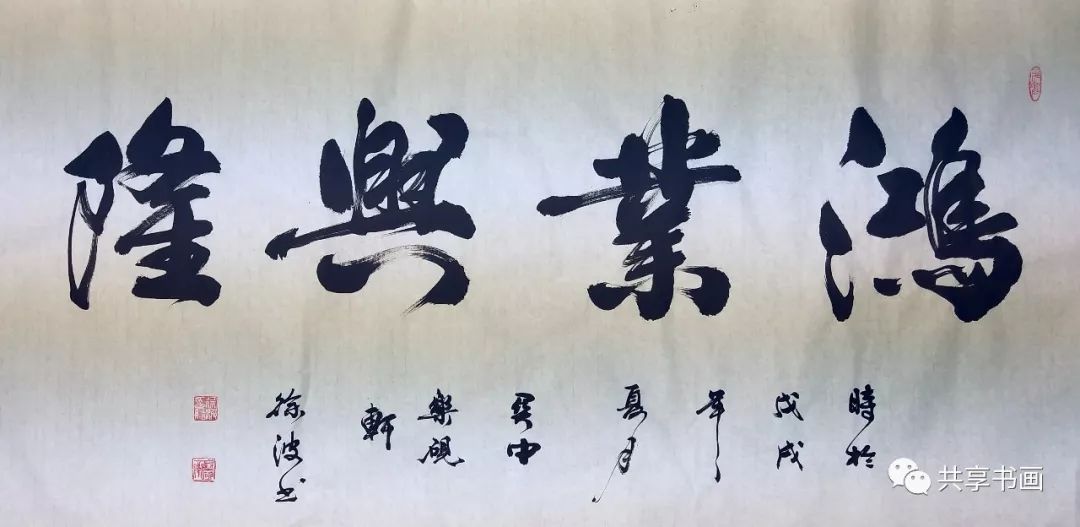 鴻業興隆
時於
戊戌
年
夏月
關中
樂硯
軒
徐波书
共享书画